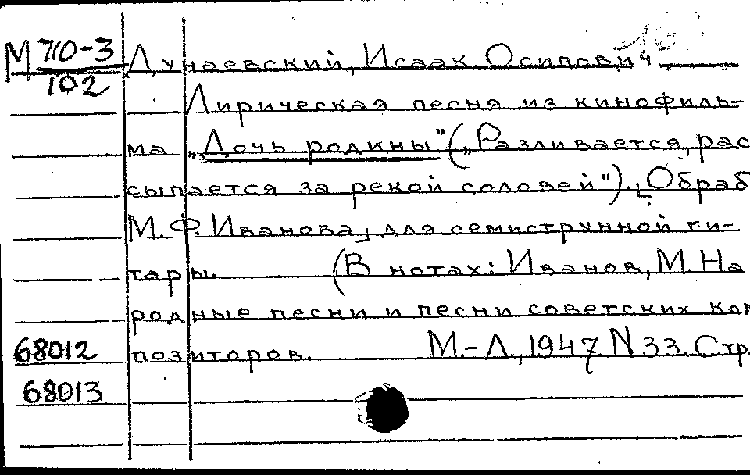 М 710-3
102
Дунаевский, Исаак Осипович
Лирическая песня из кинофиль-
ма „Дочь родины" („Разливается, рас
сыпается за рекой соловей"). Обраб
М. Ф. Иванова, для семиструнной ги-
тары. (В нотах: Иванов, М. На
родные песни и песни советских ком
68012 позиторов. М.-Л., 1947 N 33. Стр.
68013